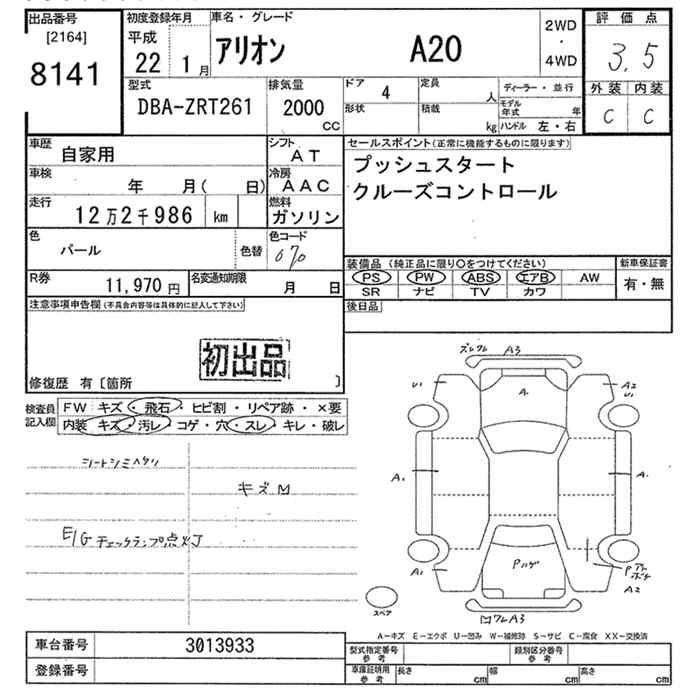 出品番号
[2164]
8141
初度登録年月
平成
22 1月
車名・グレード
アリオン A20
2WD
・
4WD
評価点
3.5
外装 内装
C C
型式
DBA-ZRT261
排気量
2000
CC
ドア 4
形状
定員 人
積載 kg
ディーラー・並行
モデル年式 年
ハンドル 左・右
車歴
自家用
シフト
AT
車検
年 月( 日)
冷房
AAC
走行
12万2千986 km
燃料
ガソリン
色
パール
色替
色コード
070
R券
11,970円
名変通知期限
月 日
セールスポイント(正常に機能するものに限ります)
プッシュスタート
クルーズコントロール
装備品 (純正品に限り○をつけてください)
PS PW ABS エアB AW
SR ナビ TV カワ
新車保証書
有・無
後日品
注意事項申告欄(不具合内容等は具体的に記入して下さい)
初出品
修復歴 有〔箇所 〕
検査員
記入欄
FW キズ・飛石・ヒビ割・リペア跡・×要
内装 キズ・汚レ・コゲ・穴・スレ・キレ・破レ
シートシミヘタリ
キズM
E/G チェックランプ点灯
A3
U1
A.
A2
U1
A1
A.
A1
Pハゲ
A2
A3
スペア
A-キズ E-エクボ U-凹み W-補修跡 S-サビ C-腐食 XX-交換済
車台番号
3013933
登録番号
型式指定番号
参考
類別区分番号
参考
車庫証明用
参考
長さ cm
幅 cm
高さ cm